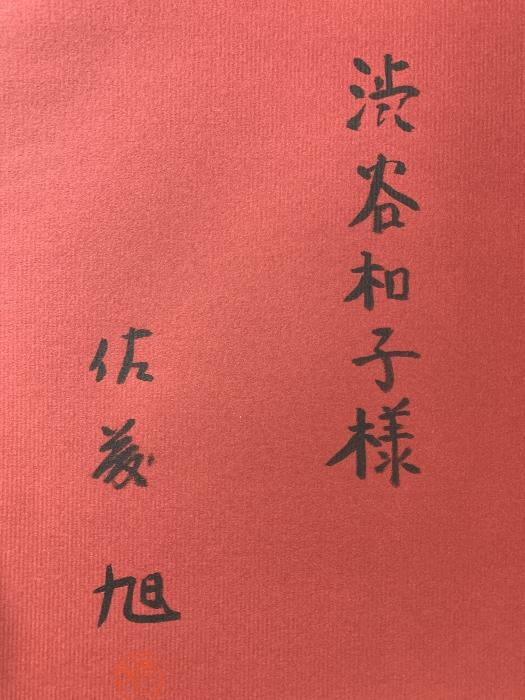 渋谷和子様
佐藤 旭